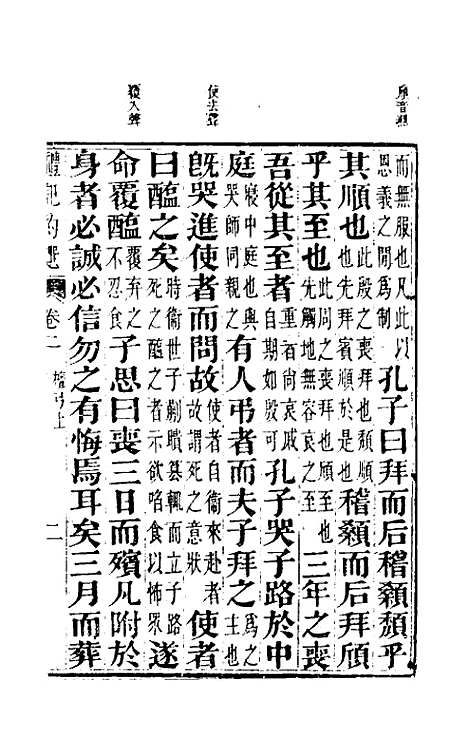 而無服也凡此以恩義之閒為制孔子曰拜而后稽顙頹乎
其順也此殷之喪拜也頹順也先拜賓順於是也稽顙而后拜頎
乎其至也此周之喪拜也頎至也先觸地無容哀之至三年之喪
吾從其至者重者尚哀戚自期如殷可孔子哭子路於中
庭寢中庭也與哭師同親之有人弔者而夫子拜之為之主也
旣哭進使者而問故使者自衞來赴者故謂死之意狀使者
曰醢之矣時衞世子蒯聵簒輒而立子路死之醢之者示欲啗食以怖眾遂
命覆醢覆弃之不忍食子思曰喪三日而殯凡附於
身者必誠必信勿之有悔焉耳矣三月而葬
禮記約選 卷二 檀弓上 二
使去聲
覆入聲